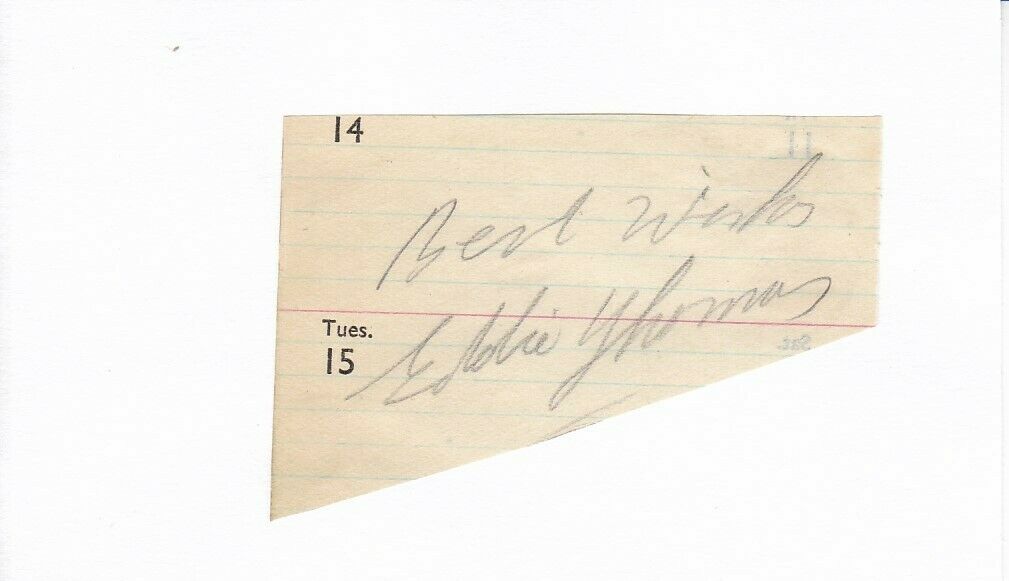 14
Best Wishes
Tues.
15
Eddie Thomas